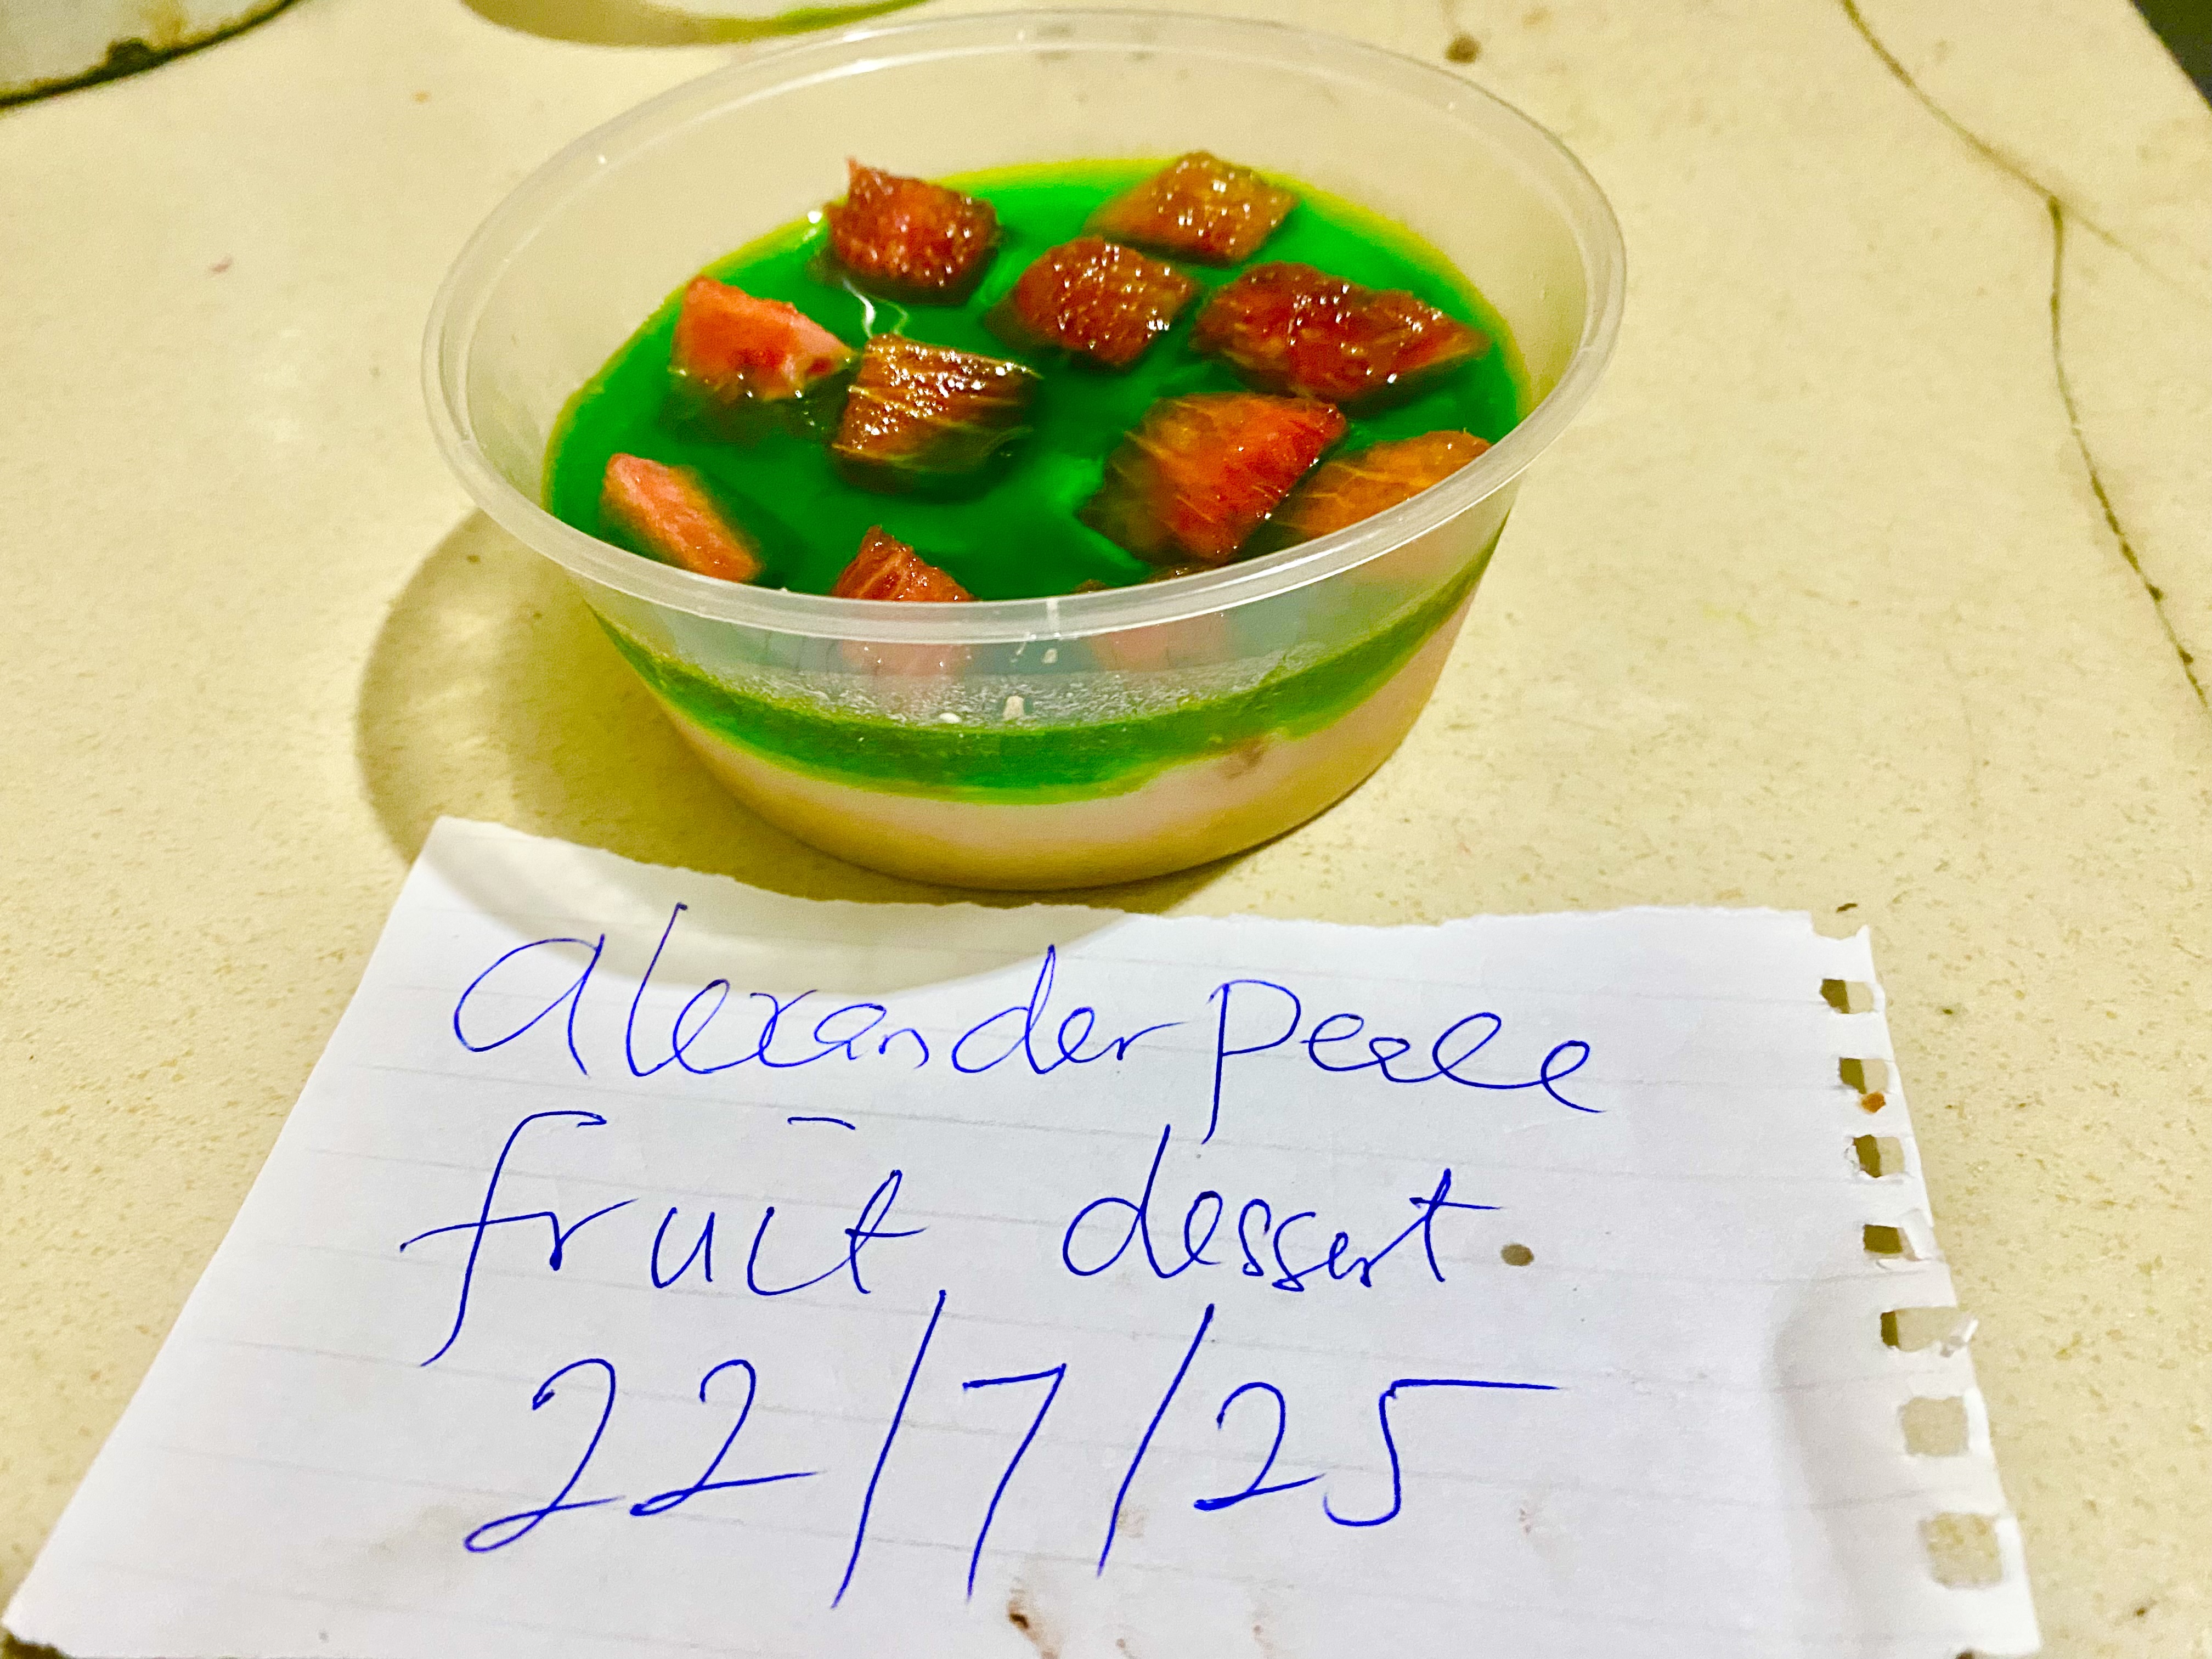 Alexander Peale
fruit dessert.
22/7/25